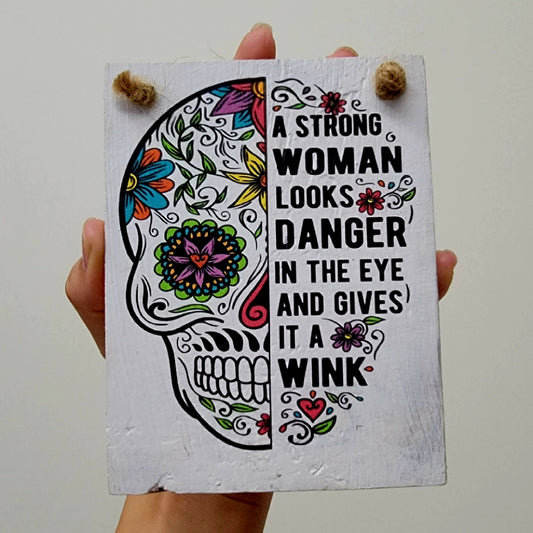 A STRONG
WOMAN
LOOKS
DANGER
IN THE EYE
AND GIVES
IT A
WINK